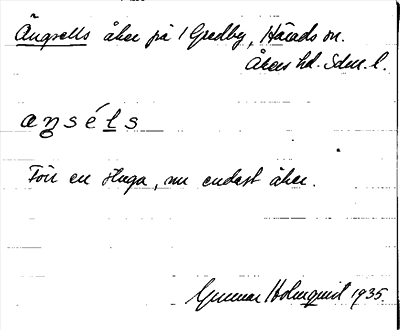 Ängsells åker på 1 Gredby, Härads sn.
Åkers hd. Sdm. l.
aŋséls
Förr en stuga, nu endast åker.
Gunnar Holmquist 1935.